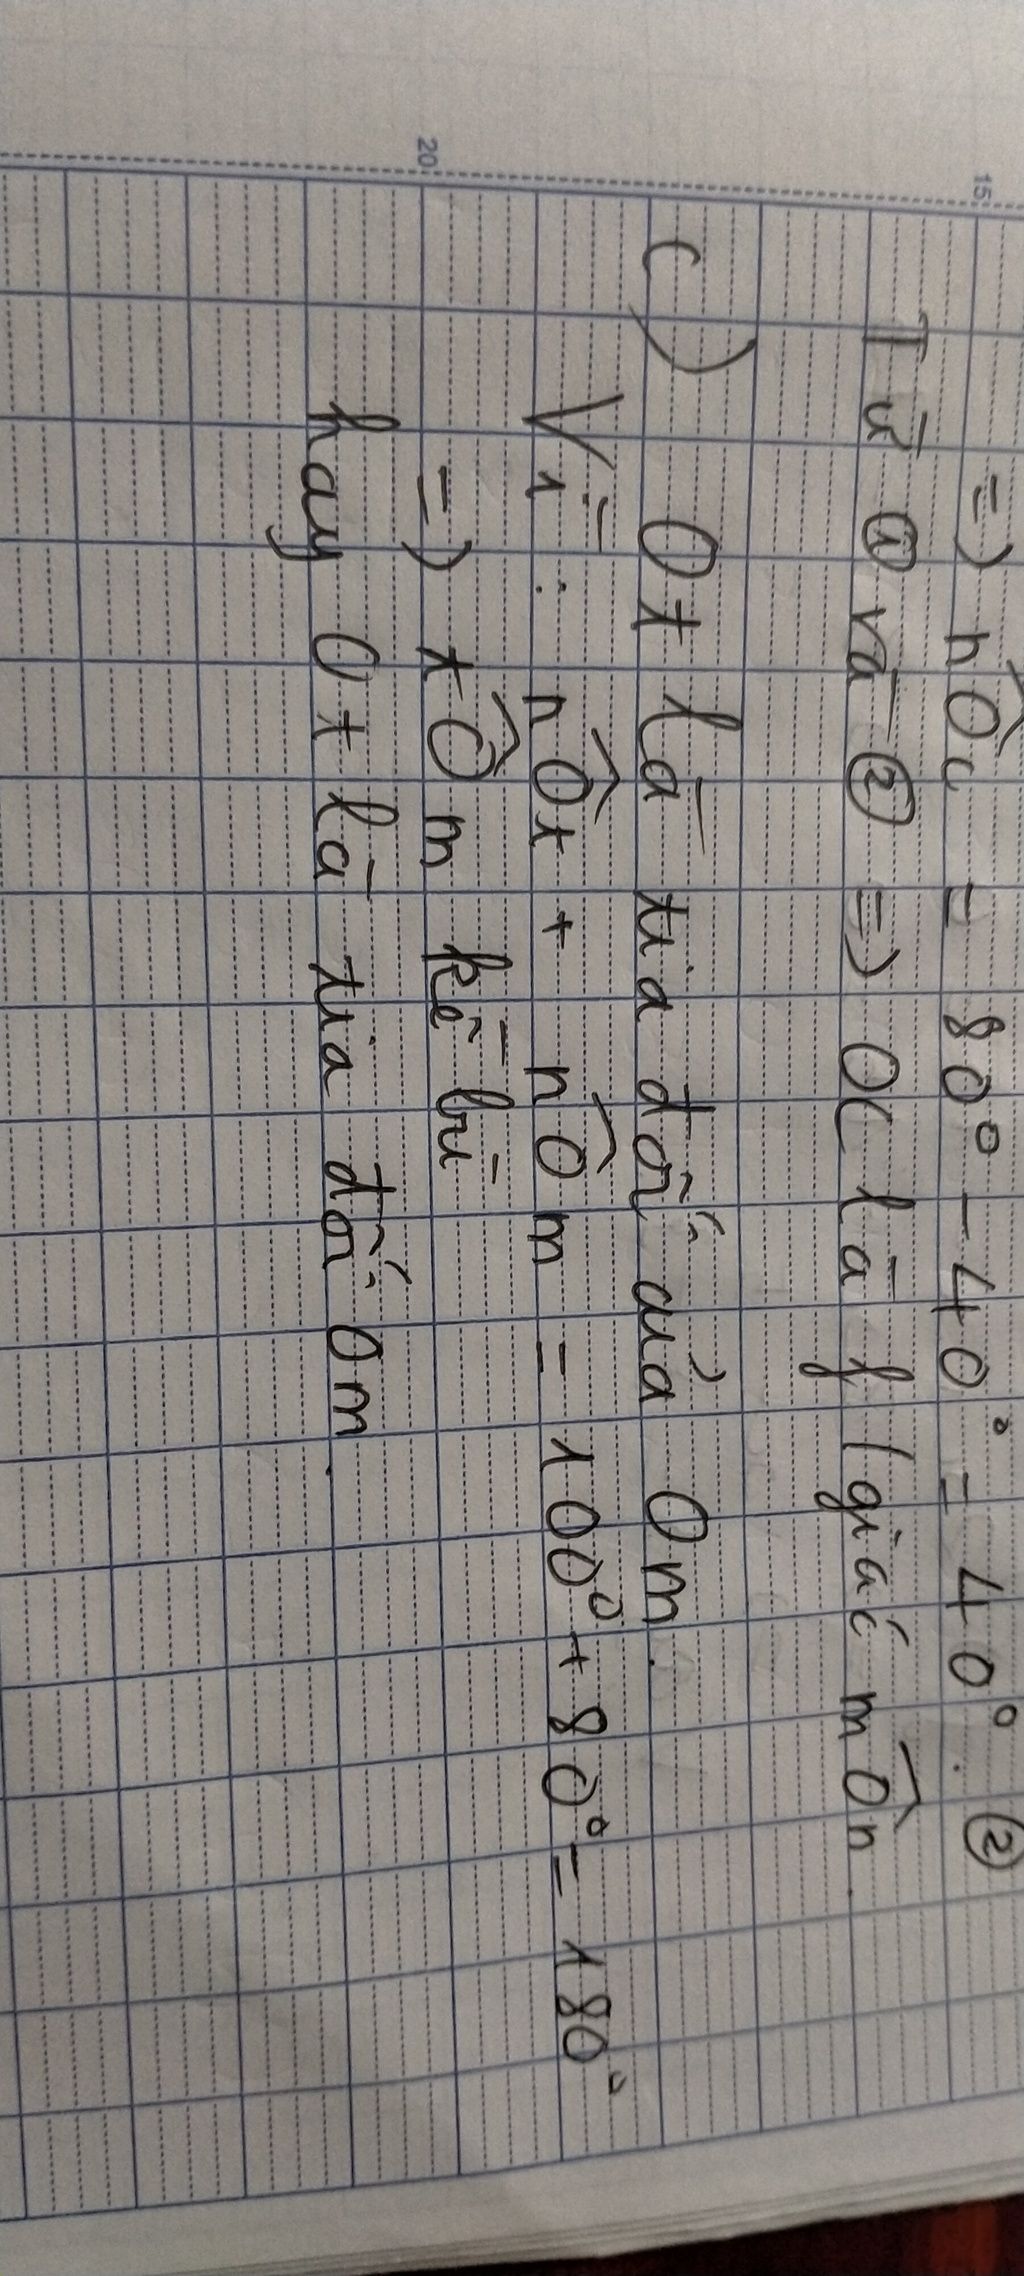 15
=) nÔc = 80° - 40° = 40°. ②
Từ ① và ② =) OC là f/giác mÔn.
c) Ot là tia đối của Om.
Vì : nÔt + nÔm = 100° + 80° = 180°
20
=) tÔm kề bù
hay Ot là tia đối Om.